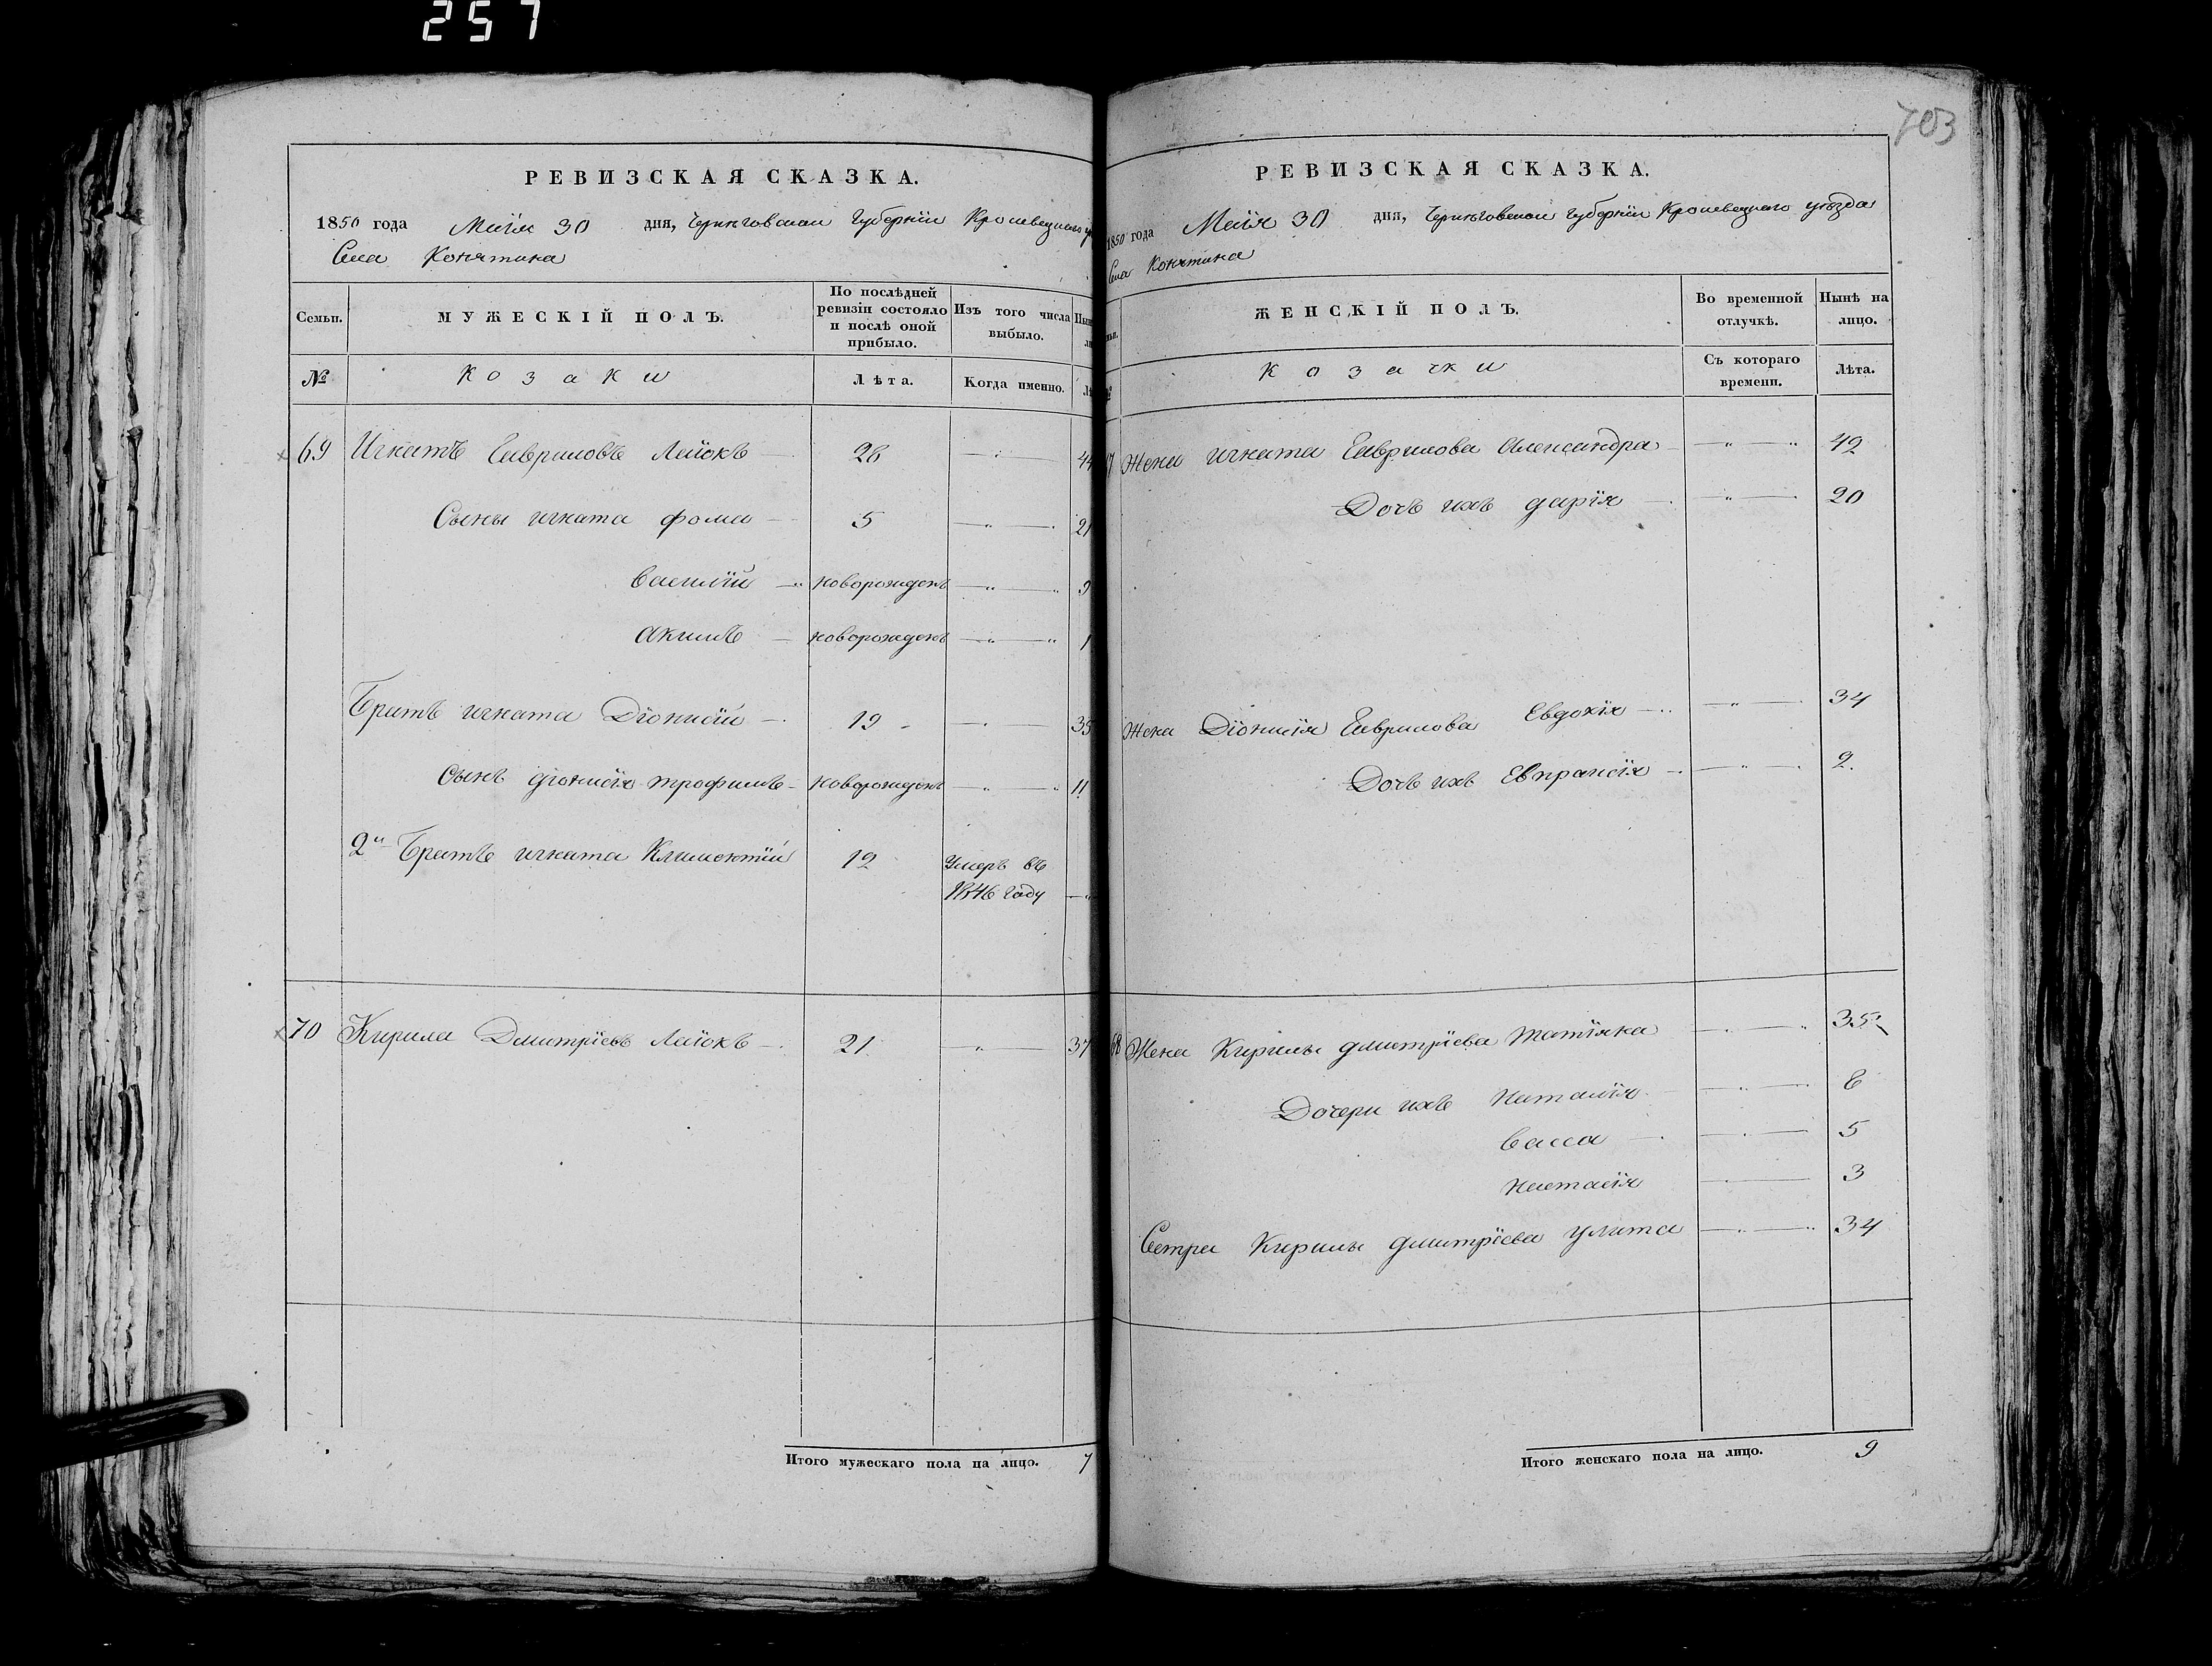 257
703
РЕВИЗСКАЯ СКАЗКА.
1850 года Маія 30 дня, Черниговской Губерніи Кролевецкаго
Села Конятина
Семьи. МУЖЕСКІЙ ПОЛЪ. По послѣдней ревизіи состояло и послѣ оной прибыло. Изъ того числа выбыло.
№ Козаки Лѣта. Когда именно.
69 Игнатъ Гавриловъ Лаіокъ 28 44
Сыны игната фома 5 21
василій новорожденъ 9
акимъ новорожденъ 1
Братъ игната Діонисій 19 35
Сынъ діонисія трофимъ новорожденъ 11
2й Братъ игната Климентій 12 Умеръ въ
1846 году
70 Кирила Дмитріевъ Лаіокъ 21 37
Итого мужескаго пола на лицо. 7
РЕВИЗСКАЯ СКАЗКА.
1850 года Маія 30 дня, Черниговской губерніи Кролевецкаго уѣзда
Села Конятина
ЖЕНСКІЙ ПОЛЪ. Во временной отлучкѣ. Нынѣ на лицо.
Козачки Съ котораго времени. Лѣта.
Жена игната Гаврилова Александра 42
Дочь ихъ дарія 20
Жена Діонисія Гаврилова Евдокія 34
Дочь ихъ Евпраксія 2
Жена Кирилы дмитріева Татіяна 35
Дочери ихъ Наталія 8
васса 5
Настасія 3
Сестра Кирилы дмитріева улита 34
Итого женскаго пола на лицо. 9